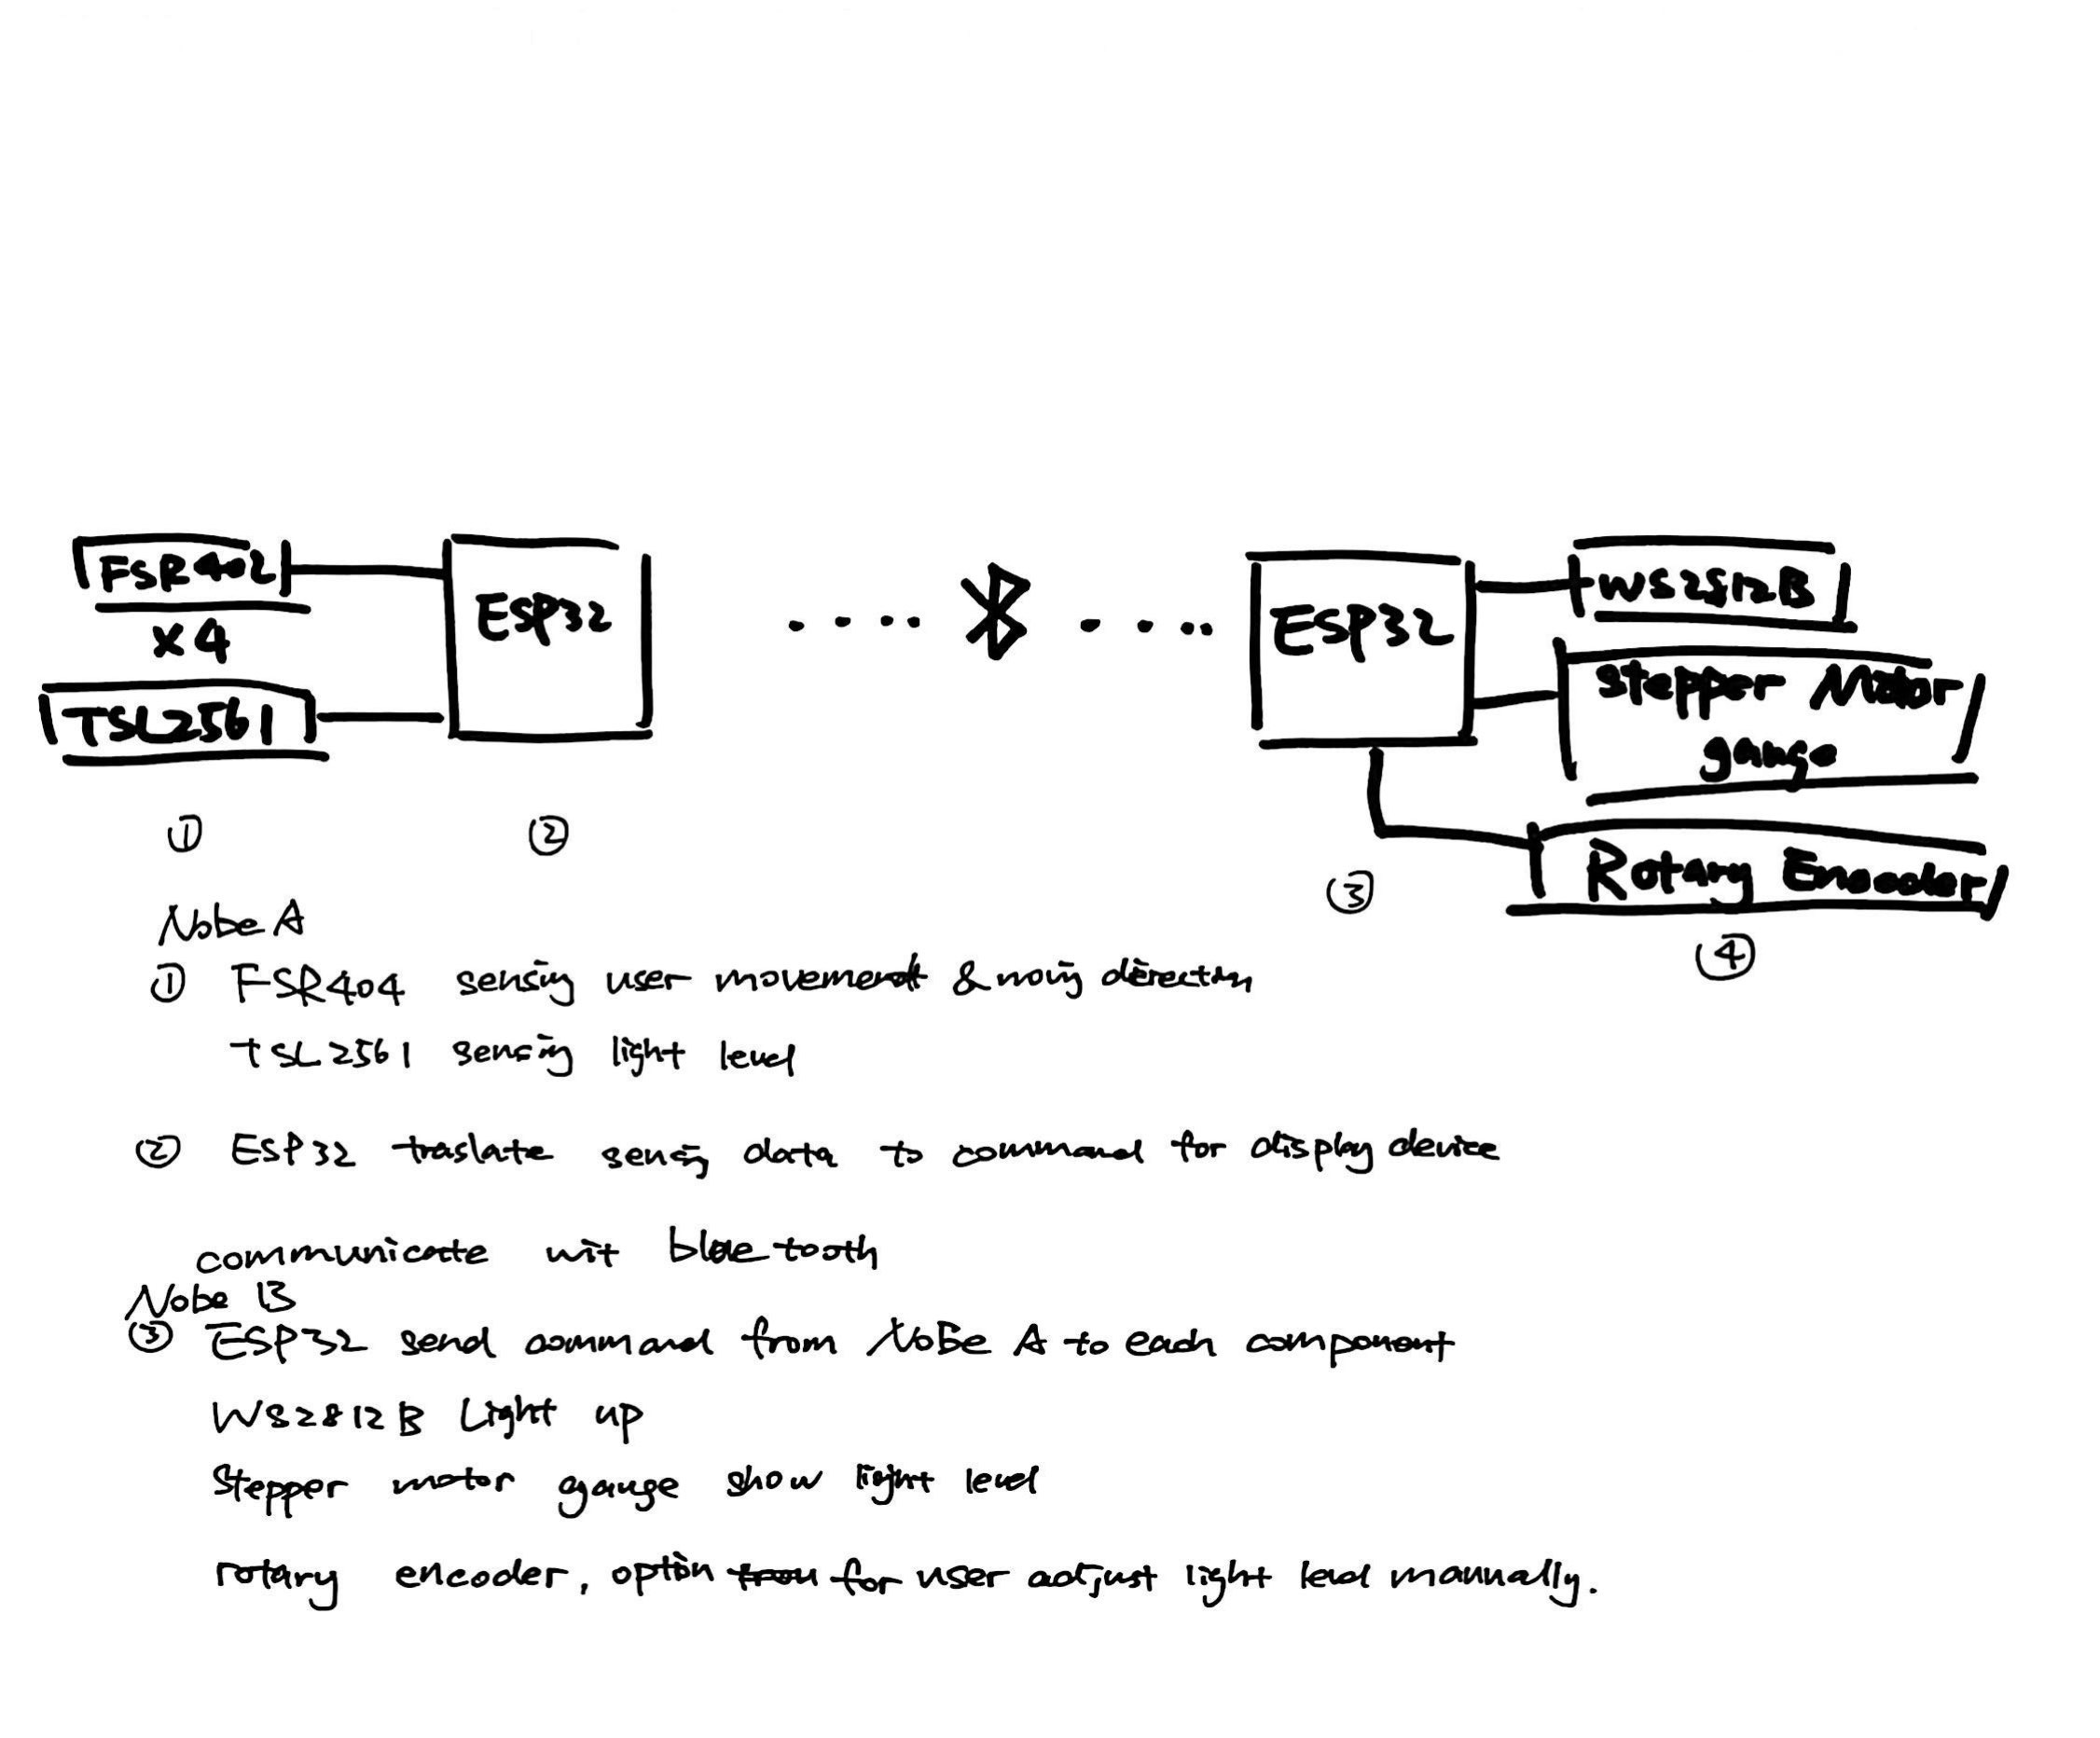 FSR402
x4
TSL2561
ESP32
ESP32
WS2812B
Stepper Motor
gauge
Rotary Encoder
①
②
③
④
Nobe A
① FSR404 sensing user movement & moving direction
TSL2561 sensing light level
② ESP32 traslate sensing data to command for display device
communicate wit bluetooth
Nobe B
③ ESP32 send command from Nobe A to each component
WS2812B Light up
Stepper motor gauge show light level
rotary encoder, option for user adjust light level manually.